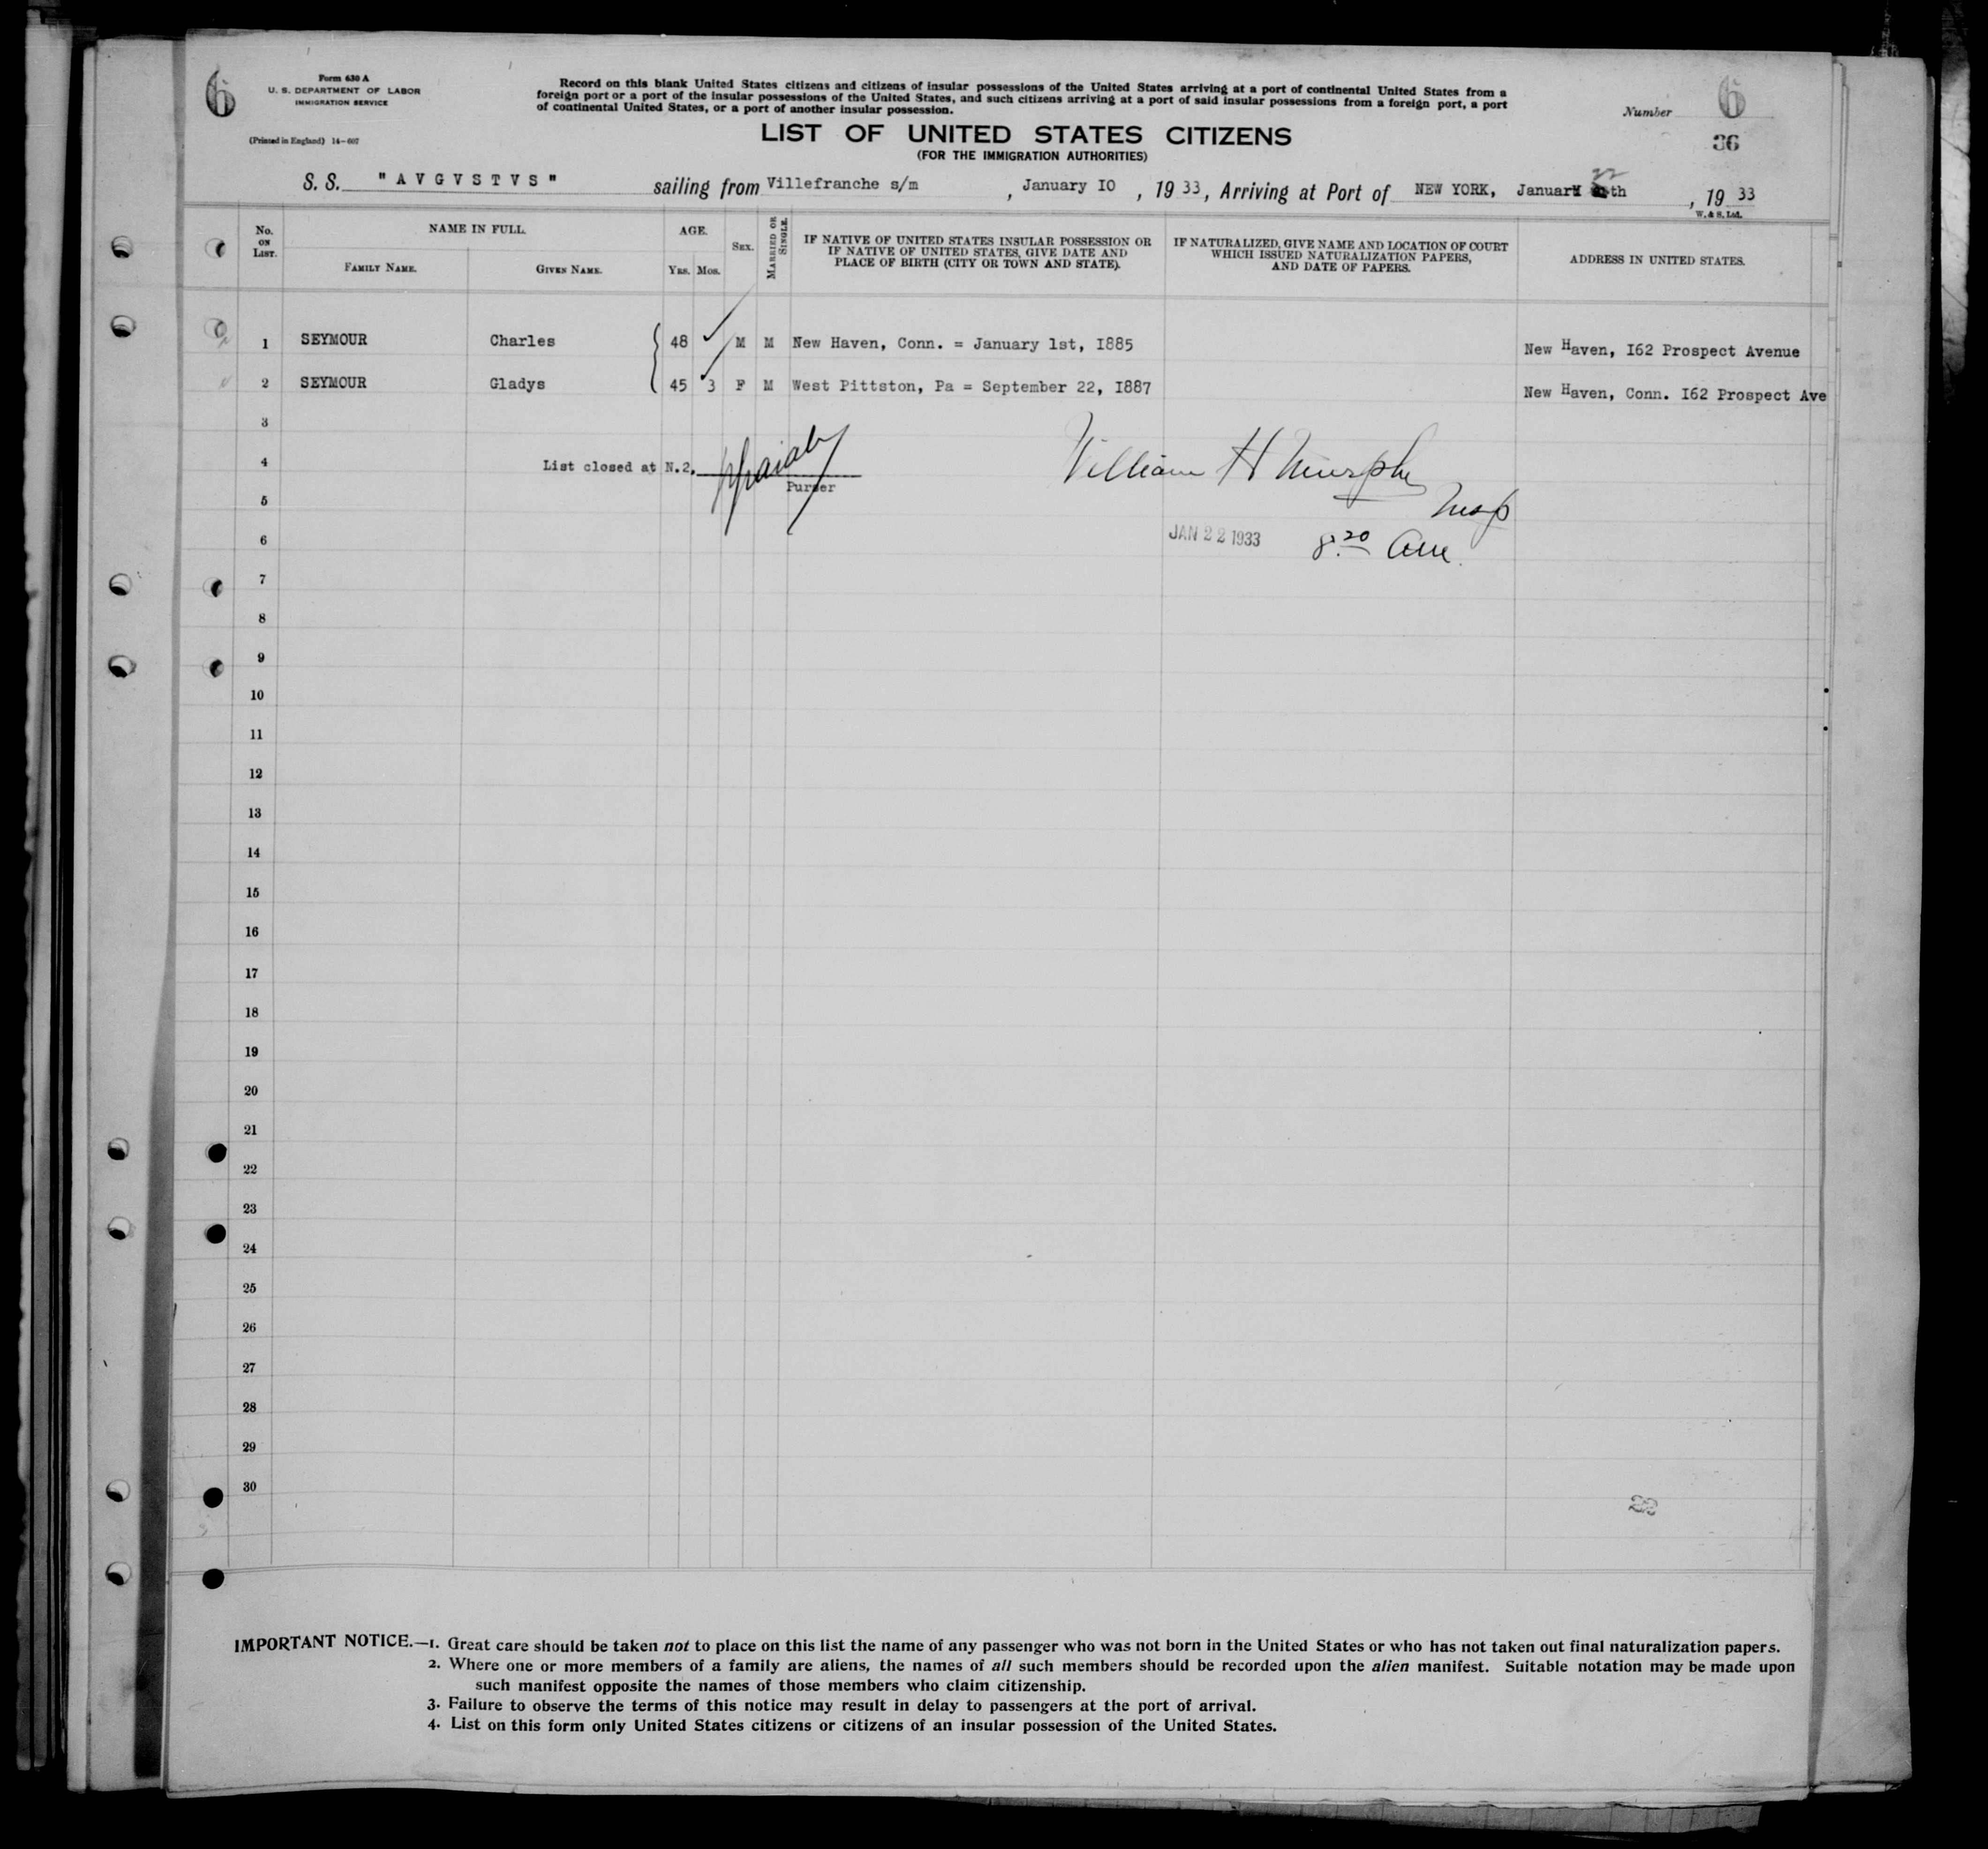 6
Form 630 A
U. S. DEPARTMENT OF LABOR
IMMIGRATION SERVICE
(Printed in England) 14-607
Record on this blank United States citizens and citizens of insular possessions of the United States arriving at a port of continental United States from a
foreign port or a port of the insular possessions of the United States, and such citizens arriving at a port of said insular possessions from a foreign port, a port
of continental United States, or a port of another insular possession.
Number 6
36
LIST OF UNITED STATES CITIZENS
(FOR THE IMMIGRATION AUTHORITIES)
S. S. "AVGVSTVS" sailing from Villefranche s/m, January I0, 1933, Arriving at Port of NEW YORK, January 22 th, 1933
W. & S. Ltd.
No. ON LIST. NAME IN FULL. AGE. SEX. MARRIED OR SINGLE. IF NATIVE OF UNITED STATES INSULAR POSSESSION OR IF NATIVE OF UNITED STATES, GIVE DATE AND PLACE OF BIRTH (CITY OR TOWN AND STATE). IF NATURALIZED, GIVE NAME AND LOCATION OF COURT WHICH ISSUED NATURALIZATION PAPERS, AND DATE OF PAPERS. ADDRESS IN UNITED STATES.
FAMILY NAME. GIVEN NAME. YRS. MOS.
1 SEYMOUR Charles 48 M M New Haven, Conn. = January 1st, I885 New Haven, I62 Prospect Avenue
2 SEYMOUR Gladys 45 3 F M West Pittston, Pa = September 22, I887 New Haven, Conn. I62 Prospect Ave
3
4 List closed at N.2. William H Murphy
Purser
5 Insp
6 JAN 22 1933 8.20 am.
7
8
9
10
11
12
13
14
15
16
17
18
19
20
21
22
23
24
25
26
27
28
29
30
IMPORTANT NOTICE.—1. Great care should be taken not to place on this list the name of any passenger who was not born in the United States or who has not taken out final naturalization papers.
2. Where one or more members of a family are aliens, the names of all such members should be recorded upon the alien manifest. Suitable notation may be made upon
such manifest opposite the names of those members who claim citizenship.
3. Failure to observe the terms of this notice may result in delay to passengers at the port of arrival.
4. List on this form only United States citizens or citizens of an insular possession of the United States.